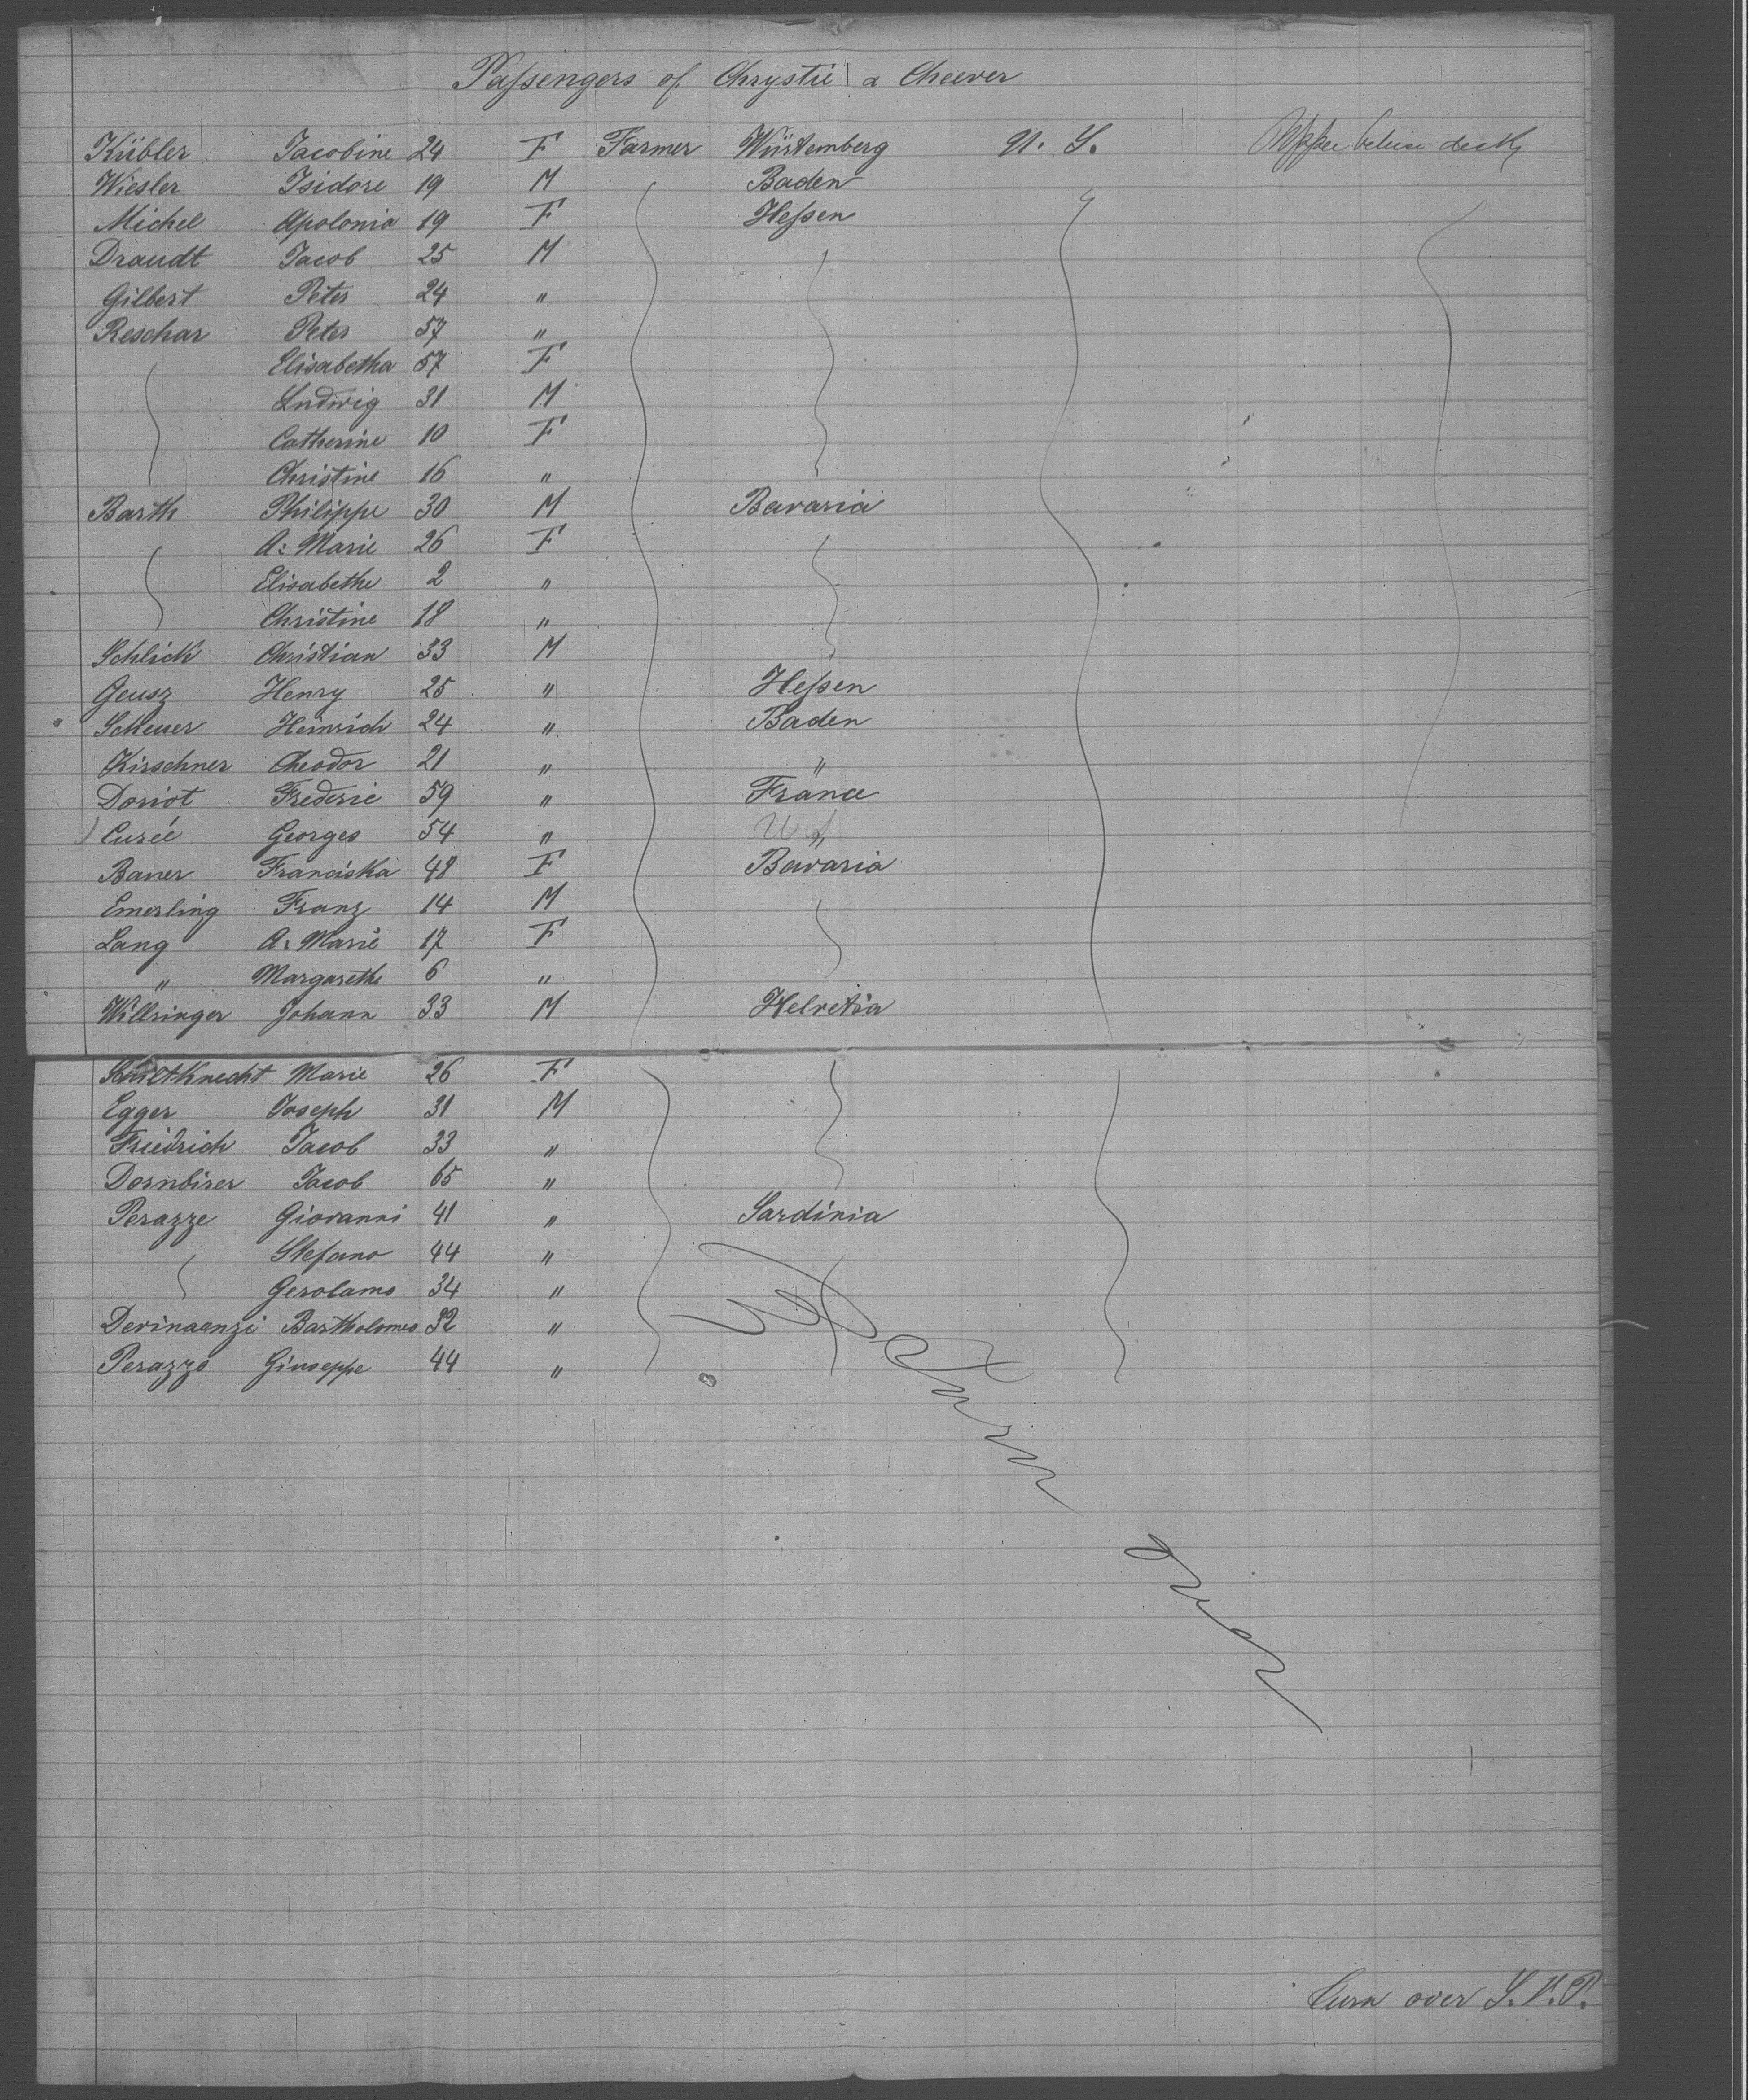 Passengers of Chrystie & Cheever
Kübler Jacobine 24 F Farmer Würtemberg U. S. Upper betwee deck
Wiesler Isidore 19 M Baden
Michel Apolonia 19 F Hessen
Draudt Jacob 25 M
Gilbert Peter 24 "
Reschar Peter 57 "
Elisabetha 57 F
Ludwig 31 M
Catherine 10 F
Christine 16 "
Barth Philippe 30 M Bavaria
A: Marie 26 F
Elisabethe 2 "
Christine 18 "
Schlick Christian 33 M
Geusz Henry 25 " Hessen
Scheuer Heinrich 24 " Baden
Kirschner Theodor 21 " "
Doriot Frederic 59 " France
Curéé Georges 54 " "
Bauer Franciska 48 F Bavaria
Emerling Franz 14 M
Lang A: Marie 17 F
" Margarethe 6 "
Willringer Johann 33 M Helvetia
Marie 26 F
Egger Joseph 31 M
Friedrich Jacob 33 "
Dornbirer Jacob 65 "
Perazze Giovanni 41 " Sardinia
Stefano 44 "
Gerolamo 34 "
Devinaenzi Bartholomeo 32 "
Perazzo Giuseppe 44 "
Turn over
Turn over S. V. P.